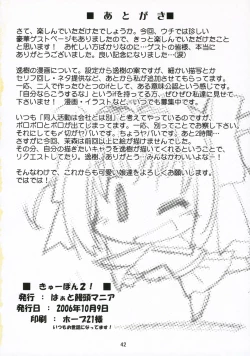 ■ あとがき ■
さて、楽しんでいただけたでしょうか。今回、ウチでは珍しい
豪華ゲストページもありましたので、きっと楽しんでいただけたこと
と思います! お忙しい方ばかりなのに…ゲストの皆様、本当に
ありがとうございました。良い記念になりました…(涙)
逸樹の漫画について。設定から逸樹の案ですが、細かい描写とか
セリフ回し・ネタ提供など、あたしからの案もちょこちょこあります。
もー。一応、二人で作ったひとつのifとして、ある意味公認という感じです。
「自分ならこうするな」というifを持ってる方、ぜひぜひ私達に見せて
下さいませ! 漫画・イラストなど、いつでも募集中です。
いつも「同人活動は会社とは別」と考えてやっているのですけれど、
ボロボロとボロが出てしまっています。一応、別ってことでお察し下さい。
それにしてもページ切がヤバいです。ちょうヤバいです。あと2時間…
さすがに今回、茉森は前以上に絵が描けませんでした。
その分、自分の描きたいキャラを逸樹が描いてくれるということで、
リクエストしてたり。ありがとうーみんなかわいいよーなー!
そんなわけで、これからも可愛い娘達をよろしくお願いします。
ではでは!
■ きゅーぽん2! ■
発行 : はぁと饅頭マニア
発行日 : 2006年10月9日
印刷 : ホープ21様
いつもお世話になってます!
42